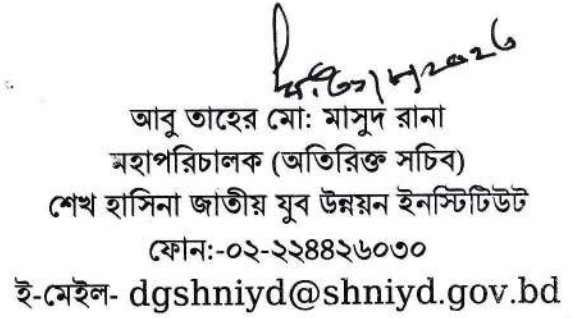 আবু তাহের মো: মাসুদ রানা
মহাপরিচালক (অতিরিক্ত সচিব)
শেখ হাসিনা জাতীয় যুব উন্নয়ন ইনস্টিটিউট
ফোন:-০২-২২৪৪২৬০৩০
ই-মেইল- dgshniyd@shniyd.gov.bd